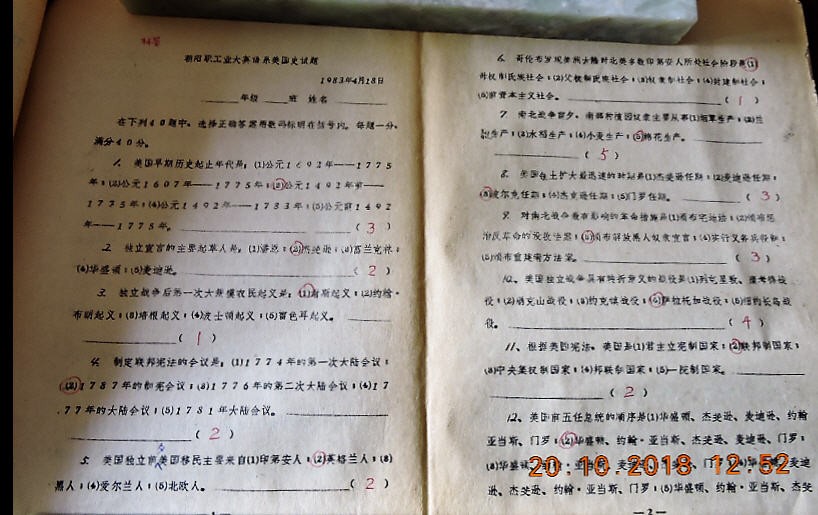 朝阳职工业大英语系美国史试题
1983年4月18日
年级 班 姓名
在下列40题中，选择正确答案用数码标明在括号内。每题一分，
满分40分。
1. 美国早期历史起止年代是：(1)公元1692年——1775
年；(2)公元1607年——1775年；(3)公元1492年前——
1775年；(4)公元1492年——1783年；(5)公元前1492
年——1775年。 （3）
2. 独立宣言的主要起草人是：(1)潘恩；(2)杰斐逊；(3)富兰克林；
(4)华盛顿；(5)麦迪逊。 （2）
3. 独立战争后第一次大规模农民起义是：(1)谢斯起义；(2)约翰·
布朗起义；(3)培根起义；(4)波士顿起义；(5)雷色耳起义。
（1）
4. 制定联邦宪法的会议是：(1)1774年的第一次大陆会议；
(2)1787年的制宪会议；(3)1776年的第二次大陆会议；(4)17
77年的大陆会议；(5)1781年大陆会议。
（2）
5. 美国独立前美国移民主要来自(1)印第安人；(2)英格兰人；(3)
黑人；(4)爱尔兰人；(5)北欧人。 （2）
6. 哥伦布发现美洲大陆时北美多数印第安人所处社会阶段是(1)
母权制氏族社会；(2)父权制氏族社会；(3)奴隶制社会；(4)封建制社会；
(5)前资本主义社会。 （1）
7. 南北战争前夕，南部种植园奴隶主要从事(1)烟草生产；(2)兰
靛生产；(3)水稻生产；(4)小麦生产；(5)棉花生产。
（5）
8. 美国领土扩大最迅速的时期是(1)杰斐逊任期；(2)麦迪逊任期；
(3)波尔克任期；(4)杰克逊任期；(5)门罗任期。 （3）
9. 对南北战争最有影响的革命措施是(1)颁布宅地法；(2)颁布惩
治叛乱的没收法案；(3)颁布解放黑人奴隶宣言；(4)实行义务兵役制；
(5)颁布重建南方法案。 （3）
10. 美国独立战争具有转折意义的战役是(1)列克星敦、康考得战
役；(2)朋克山战役；(3)约克镇战役；(4)萨拉托加战役；(5)纽约长岛战
役。 （4）
11. 根据美国宪法，美国是(1)君主立宪制国家；(2)联邦制国家；
(3)中央集权制国家；(4)邦联制国家；(5)一院制国家。
（2）
12. 美国前五任总统的顺序是(1)华盛顿、杰斐逊、麦迪逊、约翰
亚当斯、门罗；(2)华盛顿、约翰·亚当斯、杰斐逊、麦迪逊、门罗；
(3)华盛顿、约翰·亚当斯、麦迪逊、杰斐逊、门罗；(4)华盛顿、麦迪
逊、杰斐逊、约翰·亚当斯、门罗；(5)华盛顿、约翰·亚当斯、杰斐
—2—
20.10.2018 12:52